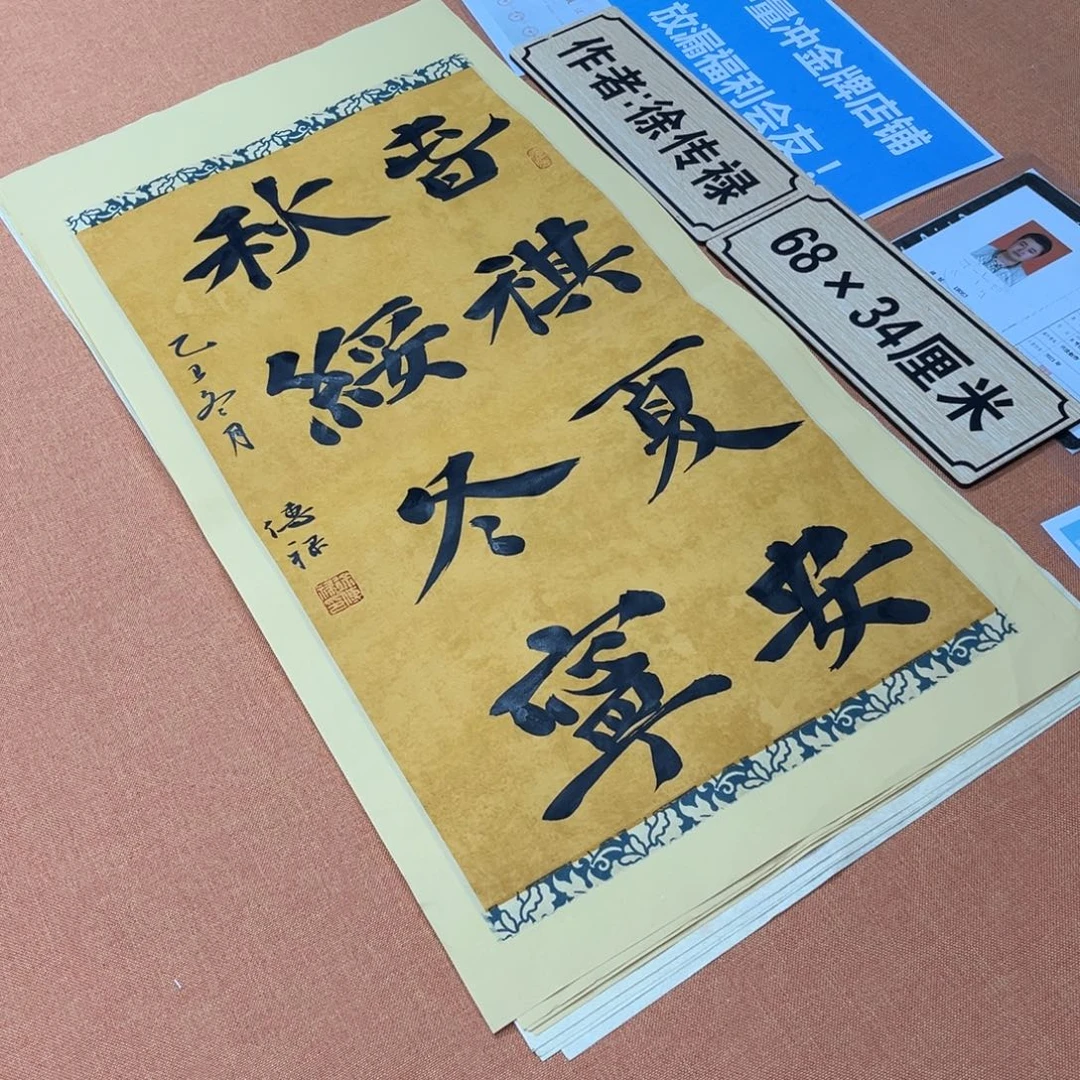 春祺夏安
秋綏冬寧
乙巳冬月
傳禄
作者:徐传禄
68×34厘米
量冲金牌店铺
放漏福利会友！